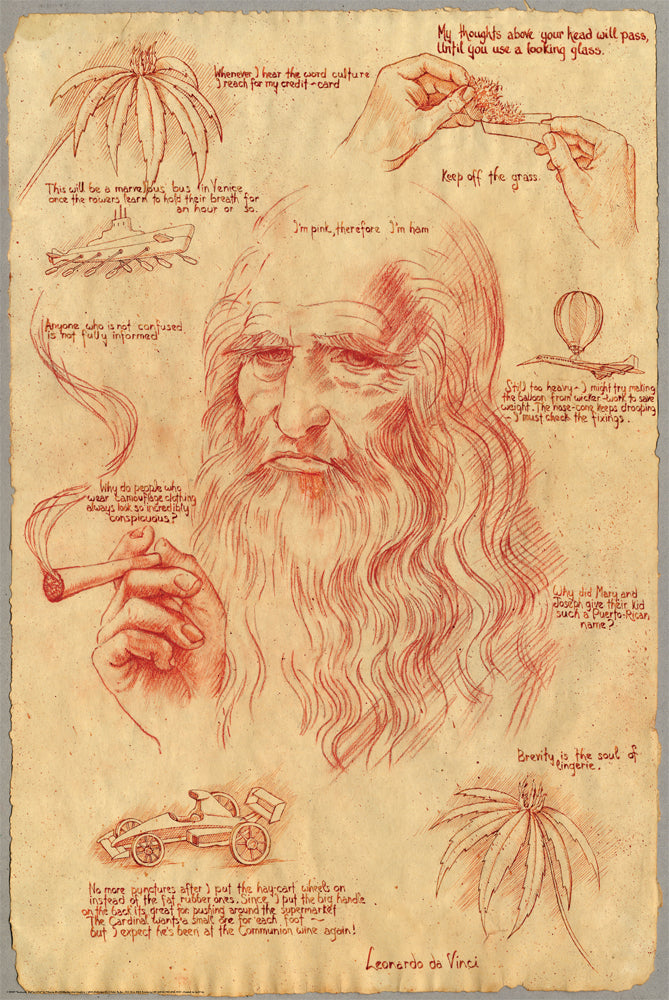 My thoughts above your head will pass,
Until you use a looking glass.
Whenever I hear the word culture
I reach for my credit-card
Keep off the grass.
This will be a marvelous bus in Venice
once the rowers learn to hold their breath for
an hour or so.
I'm pink, therefore I'm ham
Anyone who is not confused
is not fully informed
Still too heavy - I might try making
the balloon from wicker-work to save
weight. The nose-cone keeps drooping
- I must check the fixings.
Why do people who
wear camouflage clothing
always look so incredibly
conspicuous?
Why did Mary and
Joseph give their kid
such a Puerto-Rican
name?
Brevity is the soul of
lingerie.
No more punctures after I put the hay-cart wheels on
instead of the fat rubber ones. Since I put the big handle
on the back its great for pushing around the supermarket
The Cardinal wants a small one for each foot ~
but I expect he's been at the Communion wine again!
Leonardo da Vinci